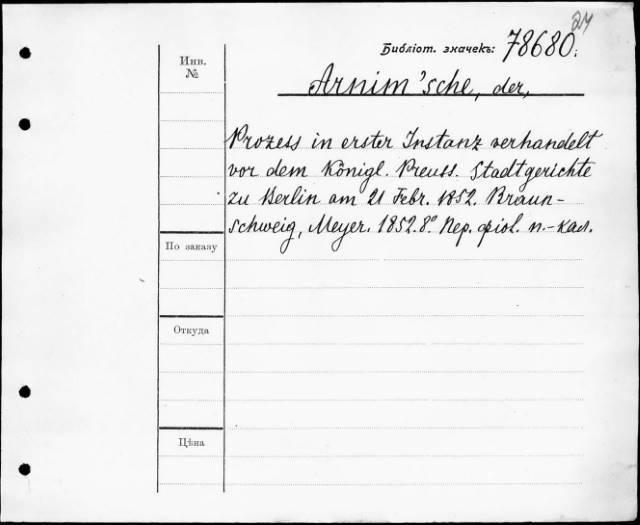 24
Библіот. значекъ: 78680.
Инв.
№
Arnim'sche, der,
Prozess in erster Instanz verhandelt
vor dem Königl. Preuss. Stadtgerichte
zu Berlin am 21 Febr. 1852. Braun-
schweig, Meyer. 1852. 8º Пер. фіол. п.-кал.
По заказу
Откуда
Цѣна